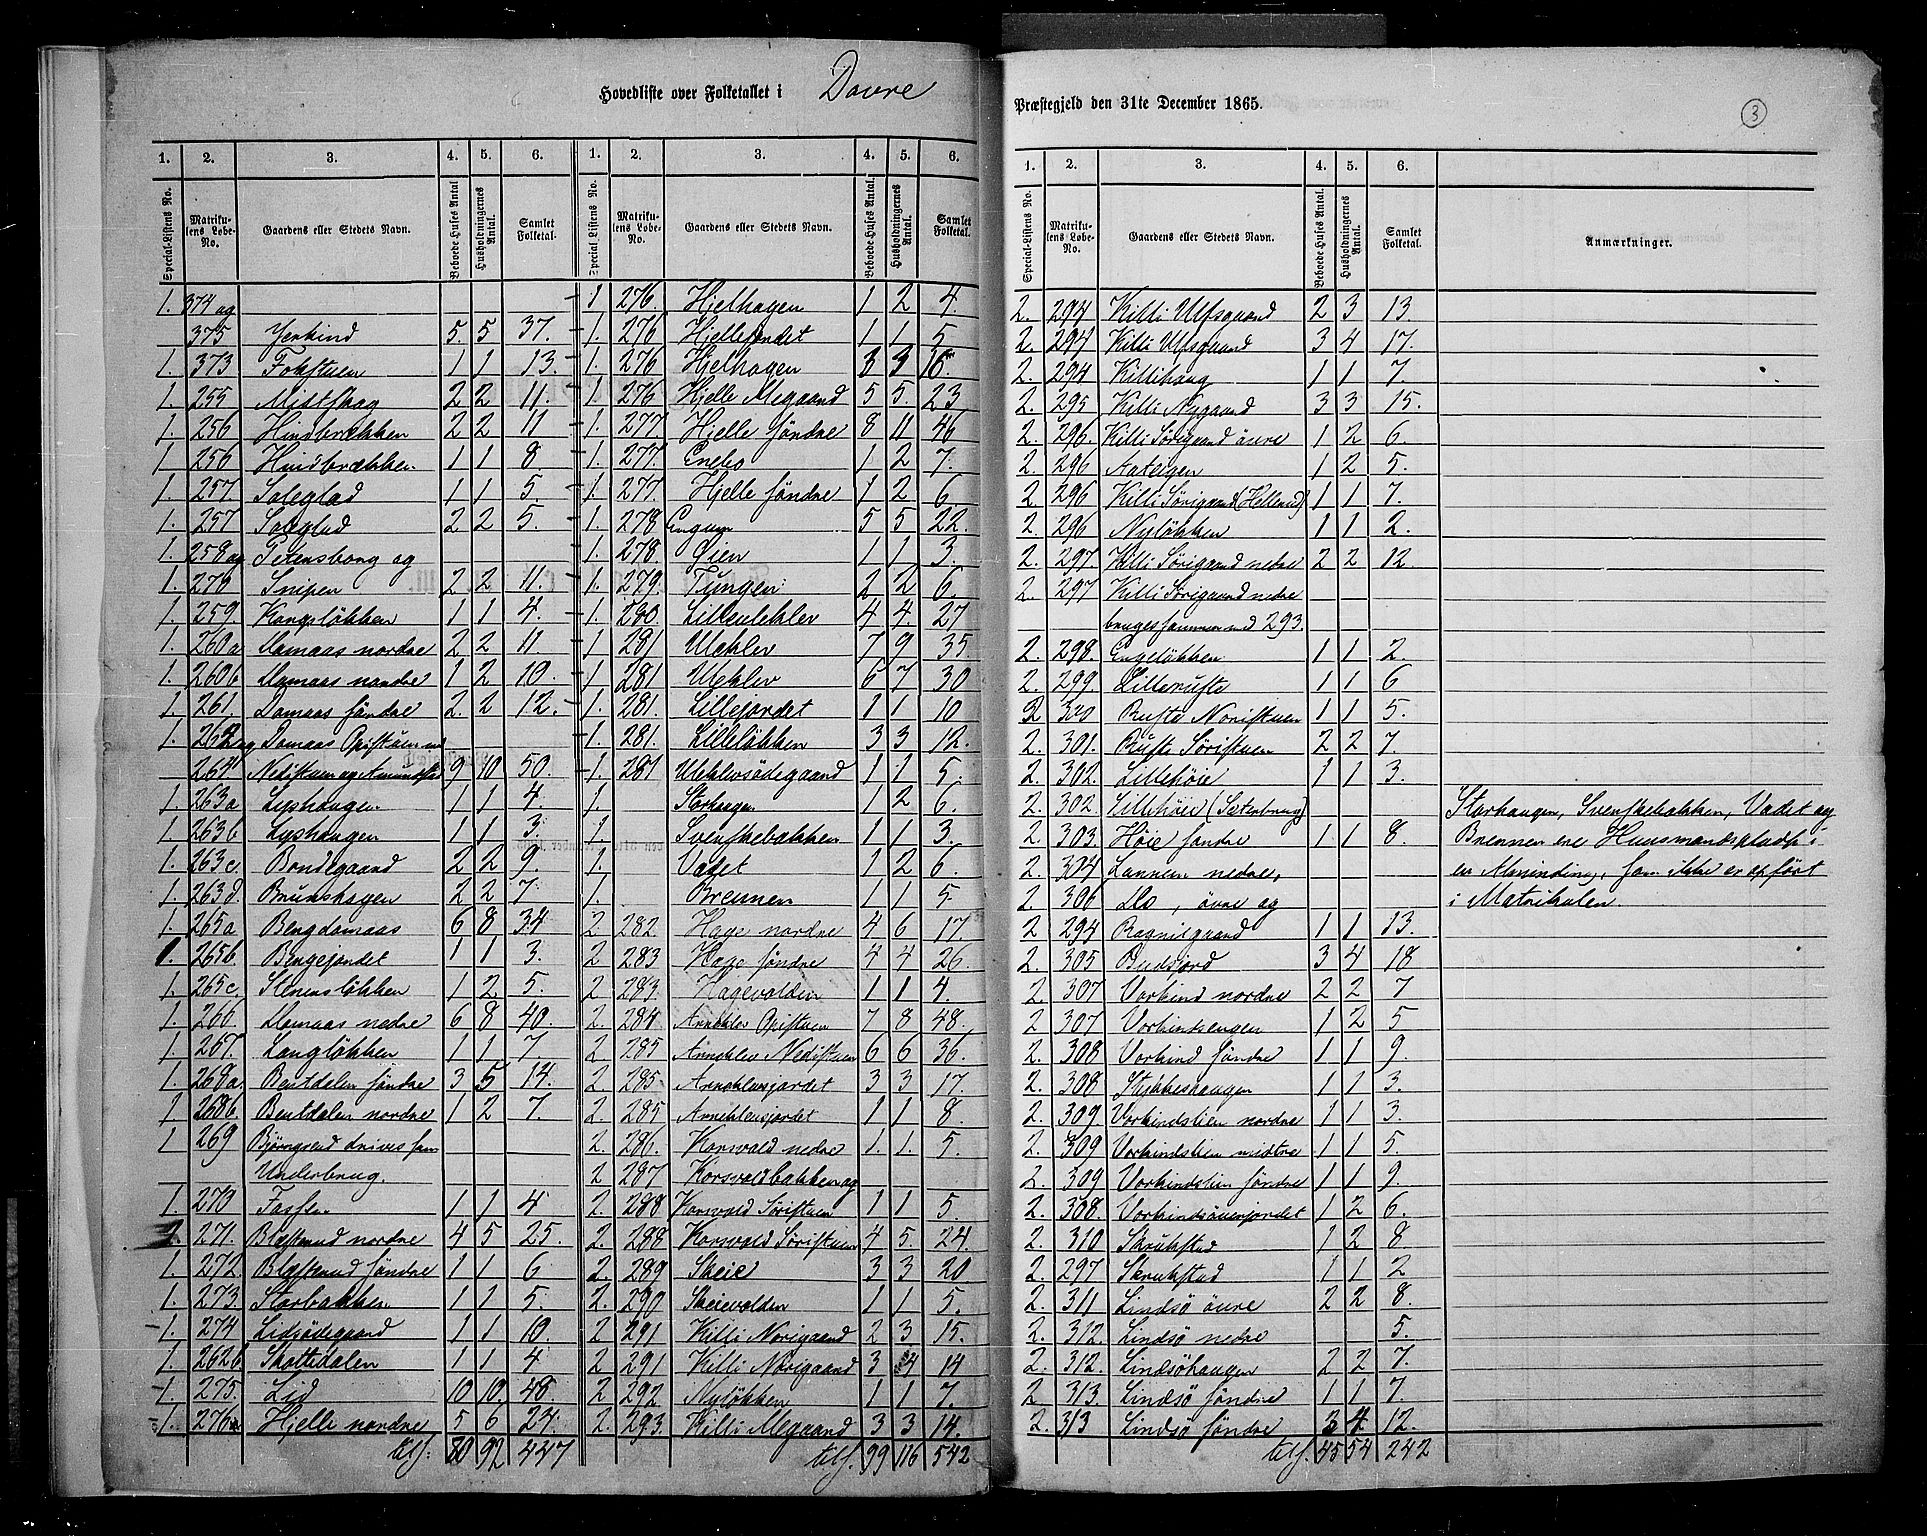 Hovedliste over Folketallet i Dovre
1. 2. 3. 4. 5. 6. 1. 2. 3. 4. 5. 6.
Special-Listens No. Matrikulens Løbe-No. Gaardens eller Stedets Navn. Beboede Huses Antal Husholdningernes Antal. Samlet Folketal. Special Listens No. Matrikulens Løbe-No. Gaardens eller Stedets Navn. Beboede Huses Antal. Husholdningernes Antal. Samlet Folketal.
1. 374 og
375 Jerkind 5. 5 37.
1. 373 Fokstuen 1 1 13.
1. 255 Midtskog 2 2 11.
1. 256 Hindbrækken 2 2 11
1. 256 Hindbrækken. 1 1 8
1. 257. Soleglad 1 1 5.
1. 257 Soleglad 2 2 5.
1. 258 og Petersborg og
1. 270 Snipen 2 2 11.
1. 259. Kongsløkken 1 1 4.
1. 260a Domaas nordre 2 2 11
1. 260b Domaas nordre 1 2 10.
1. 261. Domaas søndre 2. 2 12.
1. 262 og Domaas Opistuen med
264 Nedistuen og Amundstad 9 10 50.
1. 263a Lyshaugen 1 1 4.
1. 263b Lyshaugen 1 1 3.
1. 263c. Bondegaard 2 2 9.
1. 263d. Brunskogen 2 2 7.
1. 265a Bergdomaas 6 8 34
1. 265b. Bergejordet 1 1 3.
1. 265c. Stenersløkken 1 2 5.
1. 266. Domaas nedre 6 8 40.
1. 267. Langløkken 1 1 7.
1. 268a. Bentdalen søndre 3 5 14.
1 268b. Bentdalen nordre 1 2 7
1 269 Bjørnsrud drives som
Underbrug.
1. 270 Fosse 1 1 4
1. 271. Blæsterud nordre 4 5 25.
1. 272. Blæsterud søndre 1 1 6
1. 273. Storbakken 1 1 5.
1. 274 Lidsødegaard 1 1 10
1. 262b. Skottedalen 1 1 4
1. 275. Lid 10 10. 48.
1. 276a Hjelle nordre 5 6 24.
tils. 80 92 447
1 276. Hjelhagen 1 2 4.
1. 276 Hjellejordet 1 1 5.
1. 276 Hjelhagen 3 3 16.
1. 276 Hjelle Megaard 5 5. 23
1. 277 Hjelle søndre 8 11 46
1. 277. Enebo 1 2 7.
1. 277. Hjelle søndre 1 2 6
1. 278 Engum 5 5 22.
1. 278. Lien 1 1 3.
1. 279. Tungen 2 2 6.
1. 280. Lilleulekler 4 4 27
1 281 Ulekler 7 9 35.
1 281 Ulekler 6 7 30
1. 281. Lillejordet 1 1 10
1. 281. Lilleløkken 3 3 12.
1. 281 Uleklersødegaard 1 1 5.
1. Storhaugen 1 2 6.
1 Svenskebakken 1 1 3.
1. Vadet 1 2 6.
1. Brennen 1 1 5
2. 282. Hage nordre 4 6 17.
2 283 Hage søndre 4 4 26.
2 283. Hagevolden 1 1 4.
2. 284 Arneklev Opistuen 7 8 48.
2. 285 Arneklev Nedistuen 6 6 36.
2. 285. Arneklevsjordet 3 3 17.
2. 285 Arneklevsjordet 1 1 8.
2. 286. Korsvold nedre 1. 1. 5.
2 287 Korsvoldbakken og
2. 288 Korsvold Søristuen 1 1 5.
2. 288 Korsvold Søristuen 4 5. 24.
2. 289 Skeie 3 3 20
2. 290 Skeievolden 1 1 5.
2 291 Killi Norigaard 2 3 15.
2 291 Killi Norigaard 3 4 14
2 292 Nyløkken 1 1 7.
2. 293. Killi Megaard 3 3 14.
tils. 99 116 542
Præstegjeld den 31te December 1865. 3
1. 2. 3. 4. 5. 6.
Special-Listens No. Matrikulens Løbe-No. Gaardens eller Stedets Navn. Beboede Huses Antal. Husholdningernes Antal. Samlet Folketal. Anmærkninger.
2. 294 Killi Ulfsgaard 2 3 13.
2. 294 Killi Ulfsgaard 3 4 17.
2. 294 Killihaug 1 1 7.
2. 295 Killi Nygaard 3 3 15.
2. 296. Killi Sørigaard øvre 1 2 6.
2. 296 Aateigen 1 2 5.
2. 296 Killi Sørigaard (Hellerud) 1 1 7.
2. 296 Nyløkken 1 1 2.
2. 297. Killi Sørigaard nedre 2 2 12
2. 297 Killi Sørigaard nedre
bruges sammen med 293.
2. 298. Engeløkken 1 1 2
2. 299. Lilleruste 1 1 6
2 300 Ruste Noristuen 1 1 5.
2. 301. Ruste Søristuen 2 2 7.
2. 302. Lillehøie 1 1 3.
2. 302. Lillehøie (Sæterbrug)
2. 303. Høie søndre 1 1 8
2. 304 Lannem nedre,
2. 306 Do, øvre og
2 294 Ragnilgaard 1 1 13.
2. 305 Budsjord 3 4 18
2. 307 Vorkind nordre 2 2 7
2. 307 Vorkindsengen 1 2 5
2. 308 Vorkind søndre 1 1 9.
2. 308 Stykkeshaugen 1 1 3.
2. 309. Vorkindslien nordre 1 1 3.
2. 309 Vorkindslien midtre 1 1 5.
2. 309 Vorkindslien søndre 1 1 9.
2. 308. Vorkindsøverjordet 1 2 6.
2. 310 Skrukstad 1 2 8
2. 297 Skrukstad 1 1 2
2. 311 Lindsø øvre 2 2 8.
2. 312. Lindsø nedre 5.
2. 312. Lindsøhaugen 2 2 7.
2. 313. Lindsø søndre 1 1 7.
2. 313 Lindsø søndre 3 4 12.
tils. 45 54 242
Storhaugen, Svenskebakken, Vadet og
Brennen ere Huusmandspladse i
en Alminding, som ikke er opført
i Matrikulen.